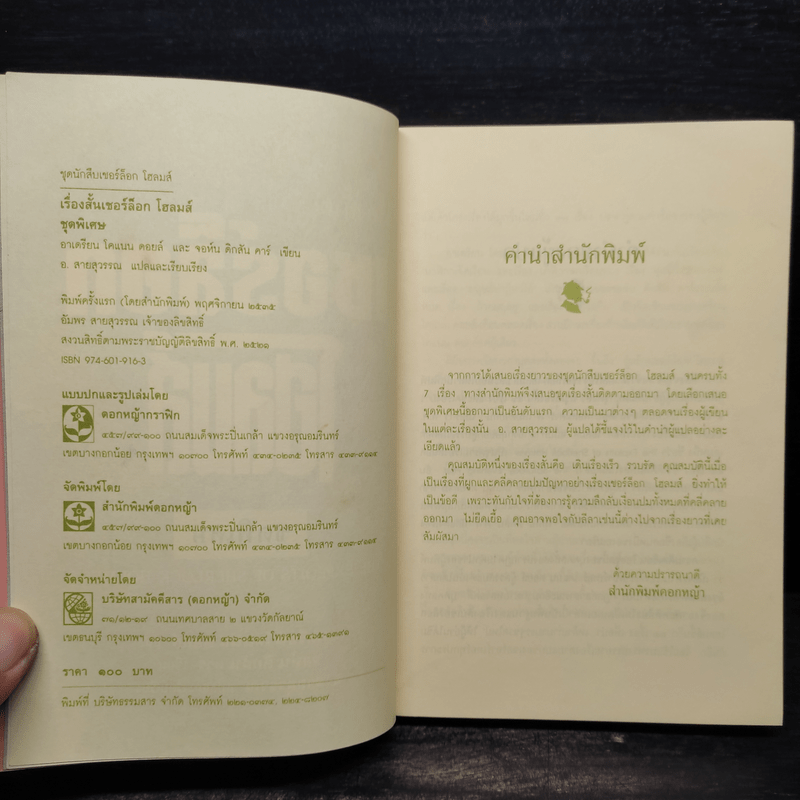 ชุดนักสืบเชอร์ล็อก โฮลมส์
เรื่องสั้นเชอร์ล็อก โฮลมส์
ชุดพิเศษ
อาเดรียน โคแนน ดอยล์ และ จอห์น ดิกสัน คาร์ เขียน
อ. สายสุวรรณ แปลและเรียบเรียง
พิมพ์ครั้งแรก (โดยสำนักพิมพ์) พฤศจิกายน ๒๕๓๕
อัมพร สายสุวรรณ เจ้าของลิขสิทธิ์
สงวนสิทธิ์ตามพระราชบัญญัติลิขสิทธิ์ พ.ศ. ๒๕๒๑
ISBN 974-601-916-3
แบบปกและรูปเล่มโดย
ดอกหญ้ากราฟิก
๔๕๗/๙๙-๑๐๐ ถนนสมเด็จพระปิ่นเกล้า แขวงอรุณอมรินทร์
เขตบางกอกน้อย กรุงเทพฯ ๑๐๗๐๐ โทรศัพท์ ๔๓๔-๐๒๓๕ โทรสาร ๔๓๓-๙๖๑๕
จัดพิมพ์โดย
สำนักพิมพ์ดอกหญ้า
๔๕๗/๙๙-๑๐๐ ถนนสมเด็จพระปิ่นเกล้า แขวงอรุณอมรินทร์
เขตบางกอกน้อย กรุงเทพฯ ๑๐๗๐๐ โทรศัพท์ ๔๓๔-๐๒๓๕ โทรสาร ๔๓๓-๙๖๑๕
จัดจำหน่ายโดย
บริษัทสามัคคีสาร (ดอกหญ้า) จำกัด
๗๑/๑๒-๑๙ ถนนเทศบาลสาย ๒ แขวงวัดกัลยาณ์
เขตธนบุรี กรุงเทพฯ ๑๐๖๐๐ โทรศัพท์ ๔๖๖-๐๕๑๙ โทรสาร ๔๖๕-๑๓๙๑
ราคา ๑๐๐ บาท
พิมพ์ที่ บริษัทธรรมสาร จำกัด โทรศัพท์ ๒๒๑-๐๓๗๔, ๒๒๔-๘๒๐๗
คำนำสำนักพิมพ์
จากการได้เสนอเรื่องยาวของชุดนักสืบเชอร์ล็อก โฮลมส์ จนครบทั้ง
7 เรื่อง ทางสำนักพิมพ์จึงเสนอชุดเรื่องสั้นติดตามออกมา โดยเลือกเสนอ
ชุดพิเศษนี้ออกมาเป็นอันดับแรก ความเป็นมาต่างๆ ตลอดจนเรื่องผู้เขียน
ในแต่ละเรื่องนั้น อ. สายสุวรรณ ผู้แปลได้ชี้แจงไว้ในคำนำผู้แปลอย่างละ
เอียดแล้ว
คุณสมบัติหนึ่งของเรื่องสั้นคือ เดินเรื่องเร็ว รวบรัด คุณสมบัตินี้เมื่อ
เป็นเรื่องที่ผูกและคลี่คลายปมปัญหาอย่างเรื่องเชอร์ล็อก โฮลมส์ ยิ่งทำให้
เป็นข้อดี เพราะทันกับใจที่ต้องการรู้ความลึกลับเงื่อนปมทั้งหมดที่คลี่คลาย
ออกมา ไม่ยืดเยื้อ คุณอาจพอใจกับลีลาเช่นนี้ต่างไปจากเรื่องยาวที่เคย
สัมผัสมา
ด้วยความปรารถนาดี
สำนักพิมพ์ดอกหญ้า